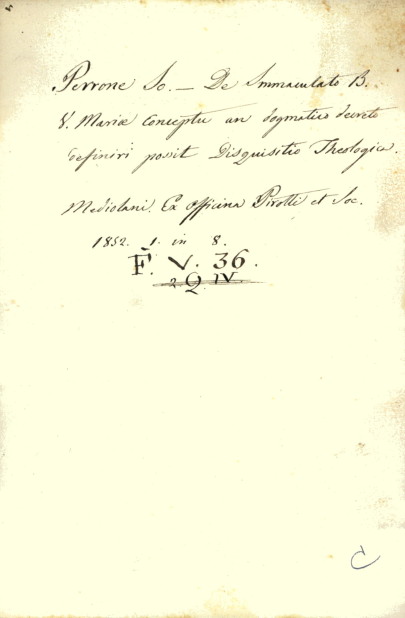 Perrone Jo. — De Immaculato B.
V. Mariæ Conceptu an dogmatico decreto
definiri possit Disquisitio Theologica.
Mediolani. Ex Officina Pirotti et Soc.
1852. 1. in 8.
F. V. 36.
2 Q IV
C